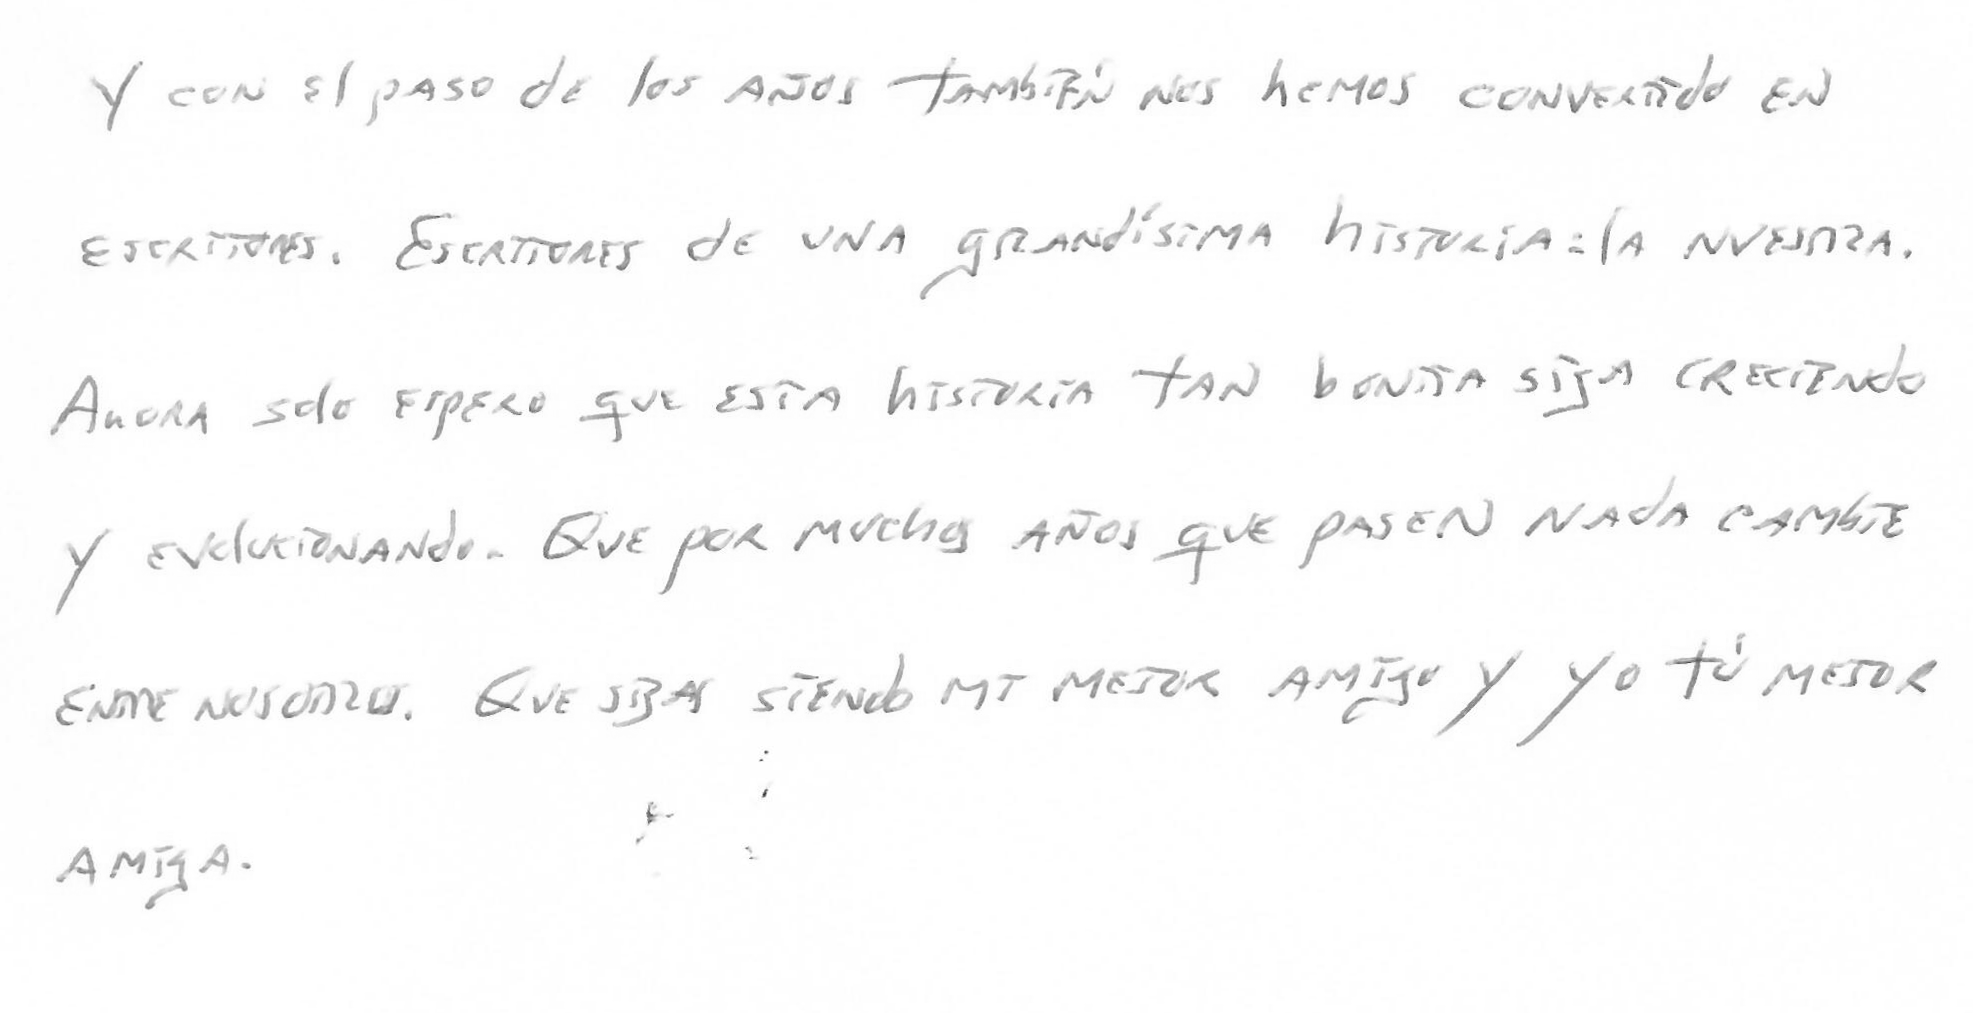 Y con el paso de los años también nos hemos convertido en
escritores. Escritores de una grandísima historia: la nuestra.
Ahora solo espero que esta historia tan bonita siga creciendo
y evolucionando. Que por muchos años que pasen nada cambie
entre nosotros. Que sigas siendo mi mejor amigo y yo tú mejor
amiga.